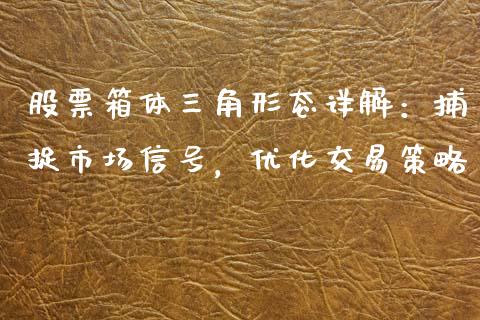 股票箱体三角形态详解：捕
捉市场信号，优化交易策略